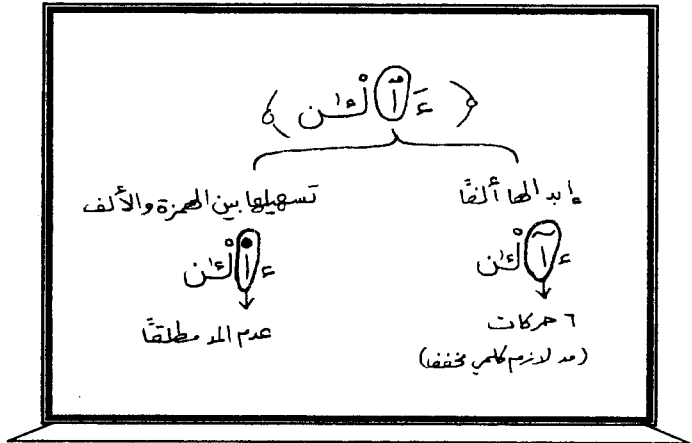 ﴿ ءَآلْـَٰٔن ﴾
إبدالها ألفًا
ءآلْـَٰٔن
٦ حركات
(مد لازم كلمي مخفف)
تسهيلها بين الهمزة والألف
ءالْـَٰٔن
عدم المد مطلقًا